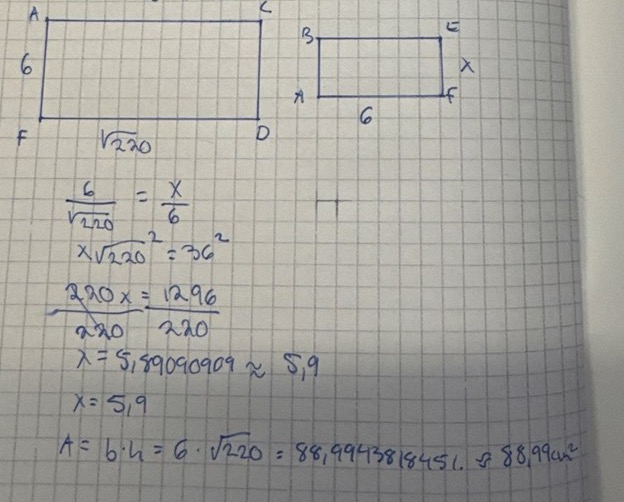 A C
B E
6 x
A F
F √220 D
6
6/√220 = x/6
x√220² = 36²
220x/220 = 1296/220
x = 5,89090909 ≈ 5,9
x = 5,9
A = b·h = 6·√220 = 88,9943818451. ≈ 88,99cm²